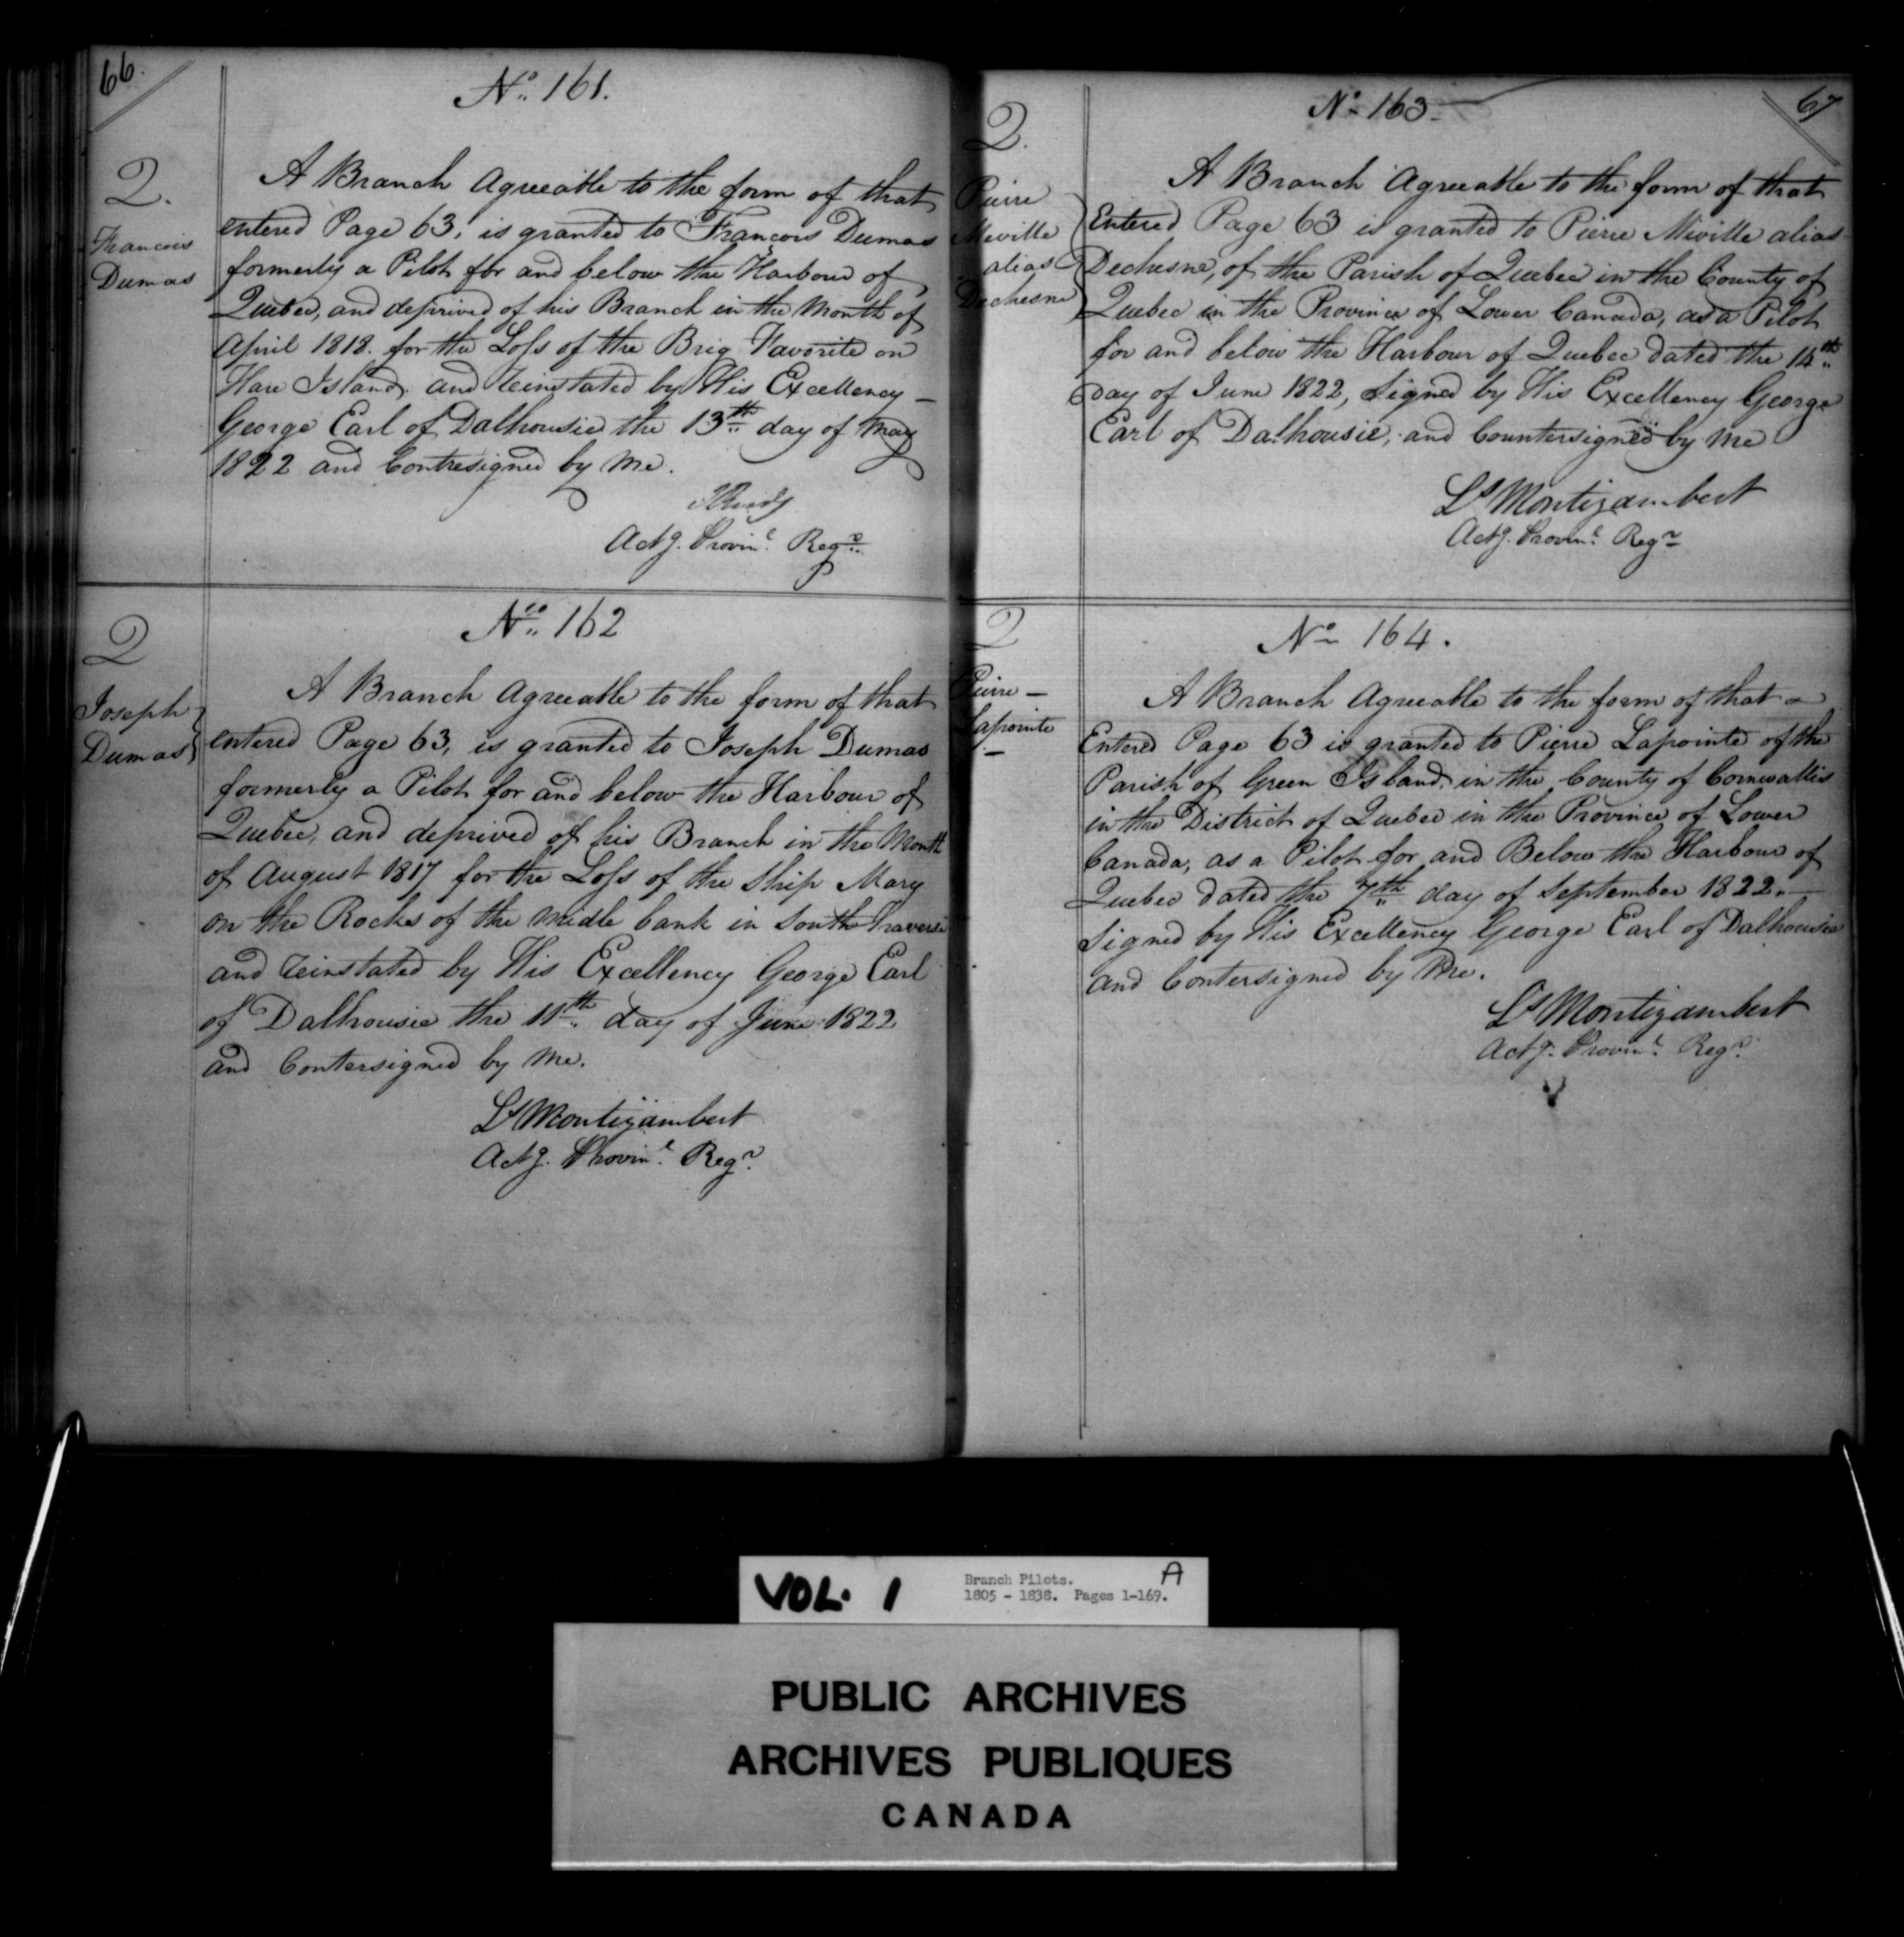 66.
No. 161.
2.
Francois
Dumas
A Branch Agreeable to the form of that
entered Page 63, is granted to François Dumas
formerly a Pilot for and below the Harbour of
Quebec, and deprived of his Branch in the Month of
April 1818. for the Loss of the Brig Favorite on
Hare Island, and reinstated by His Excellency —
George Earl of Dalhousie the 13th day of May
1822 and Contresigned by Me.
Actg. Provinl. Regr.
No. 162
2
Joseph
Dumas
A Branch Agreeable to the form of that
entered Page 63, is granted to Joseph Dumas
formerly a Pilot for and below the Harbour of
Quebec, and deprived of his Branch in the Month
of August 1817 for the Loss of the Ship Mary
on the Rocks of the Midle bank in South Traverse
and reinstated by His Excellency George Earl
of Dalhousie the 11th day of June 1822
and Contersigned by Me.
Ls Montizambert
Actg. Provinl. Regr.
67
No. 163 -
2.
Pierre
Miville
alias
Dechesne
A Branch Agreeable to the form of that
Entered Page 63 is granted to Pierre Miville alias
Dechesne, of the Parish of Quebec in the County of
Quebec in the Province of Lower Canada, as a Pilot
for and below the Harbour of Quebec dated the 14th
day of June 1822, Signed by His Excellency George
Earl of Dalhousie, and Countersigned by Me
Ls Montizambert
Actg. Provinl. Regr
No. 164.
2
Pierre —
Lapointe
—
A Branch Agreeable to the form of that
Entered Page 63 is granted to Pierre Lapointe of the
Parish of Green Island, in the County of Cornwallis
in the District of Quebec in the Province of Lower
Canada, as a Pilot for and Below the Harbour of
Quebec dated the 7th day of September 1822. —
Signed by His Excellency George Earl of Dalhousie
and Contersigned by Me.
Ls Montizambert
Actg. Provinl. Regr.
VOL. 1
Branch Pilots.
1805 - 1838. Pages 1-169.
A
PUBLIC ARCHIVES
ARCHIVES PUBLIQUES
CANADA